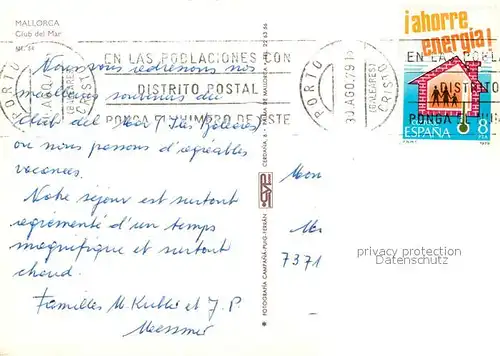 MALLORCA
Club del Mar
Nr. 64
EN LAS POBLACIONES CON
DISTRITO POSTAL
PONGA EL NUMERO DE ESTE
PORTO CRISTO
(BALEARES)
30 AGO. 79
¡ahorre
energía!
ESPAÑA 8 PTA
1979
Nous vous adressons nos
meilleurs souvenirs du
Club del Mar / Les Baléares,
ou nous passons d'agréables
vacances.
Notre séjour est surtout
agrémenté d'un temps
magnifique et surtout
chaud.
Familles M. et J. P.
Messmer
Mon
7371
FOTOGRAFIA CAMPAÑÁ-PUIG-FERRÁN
privacy protection
Datenschutz